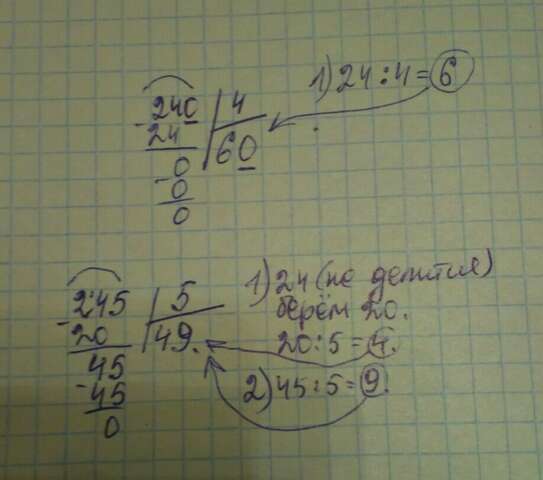 240 | 4
- 24 | 60
0
- 0
0
1) 24 : 4 = 6
245 | 5
- 20 | 49.
45
- 45
0
1) 24 (не делится)
берём 20.
20 : 5 = 4.
2) 45 : 5 = 9.